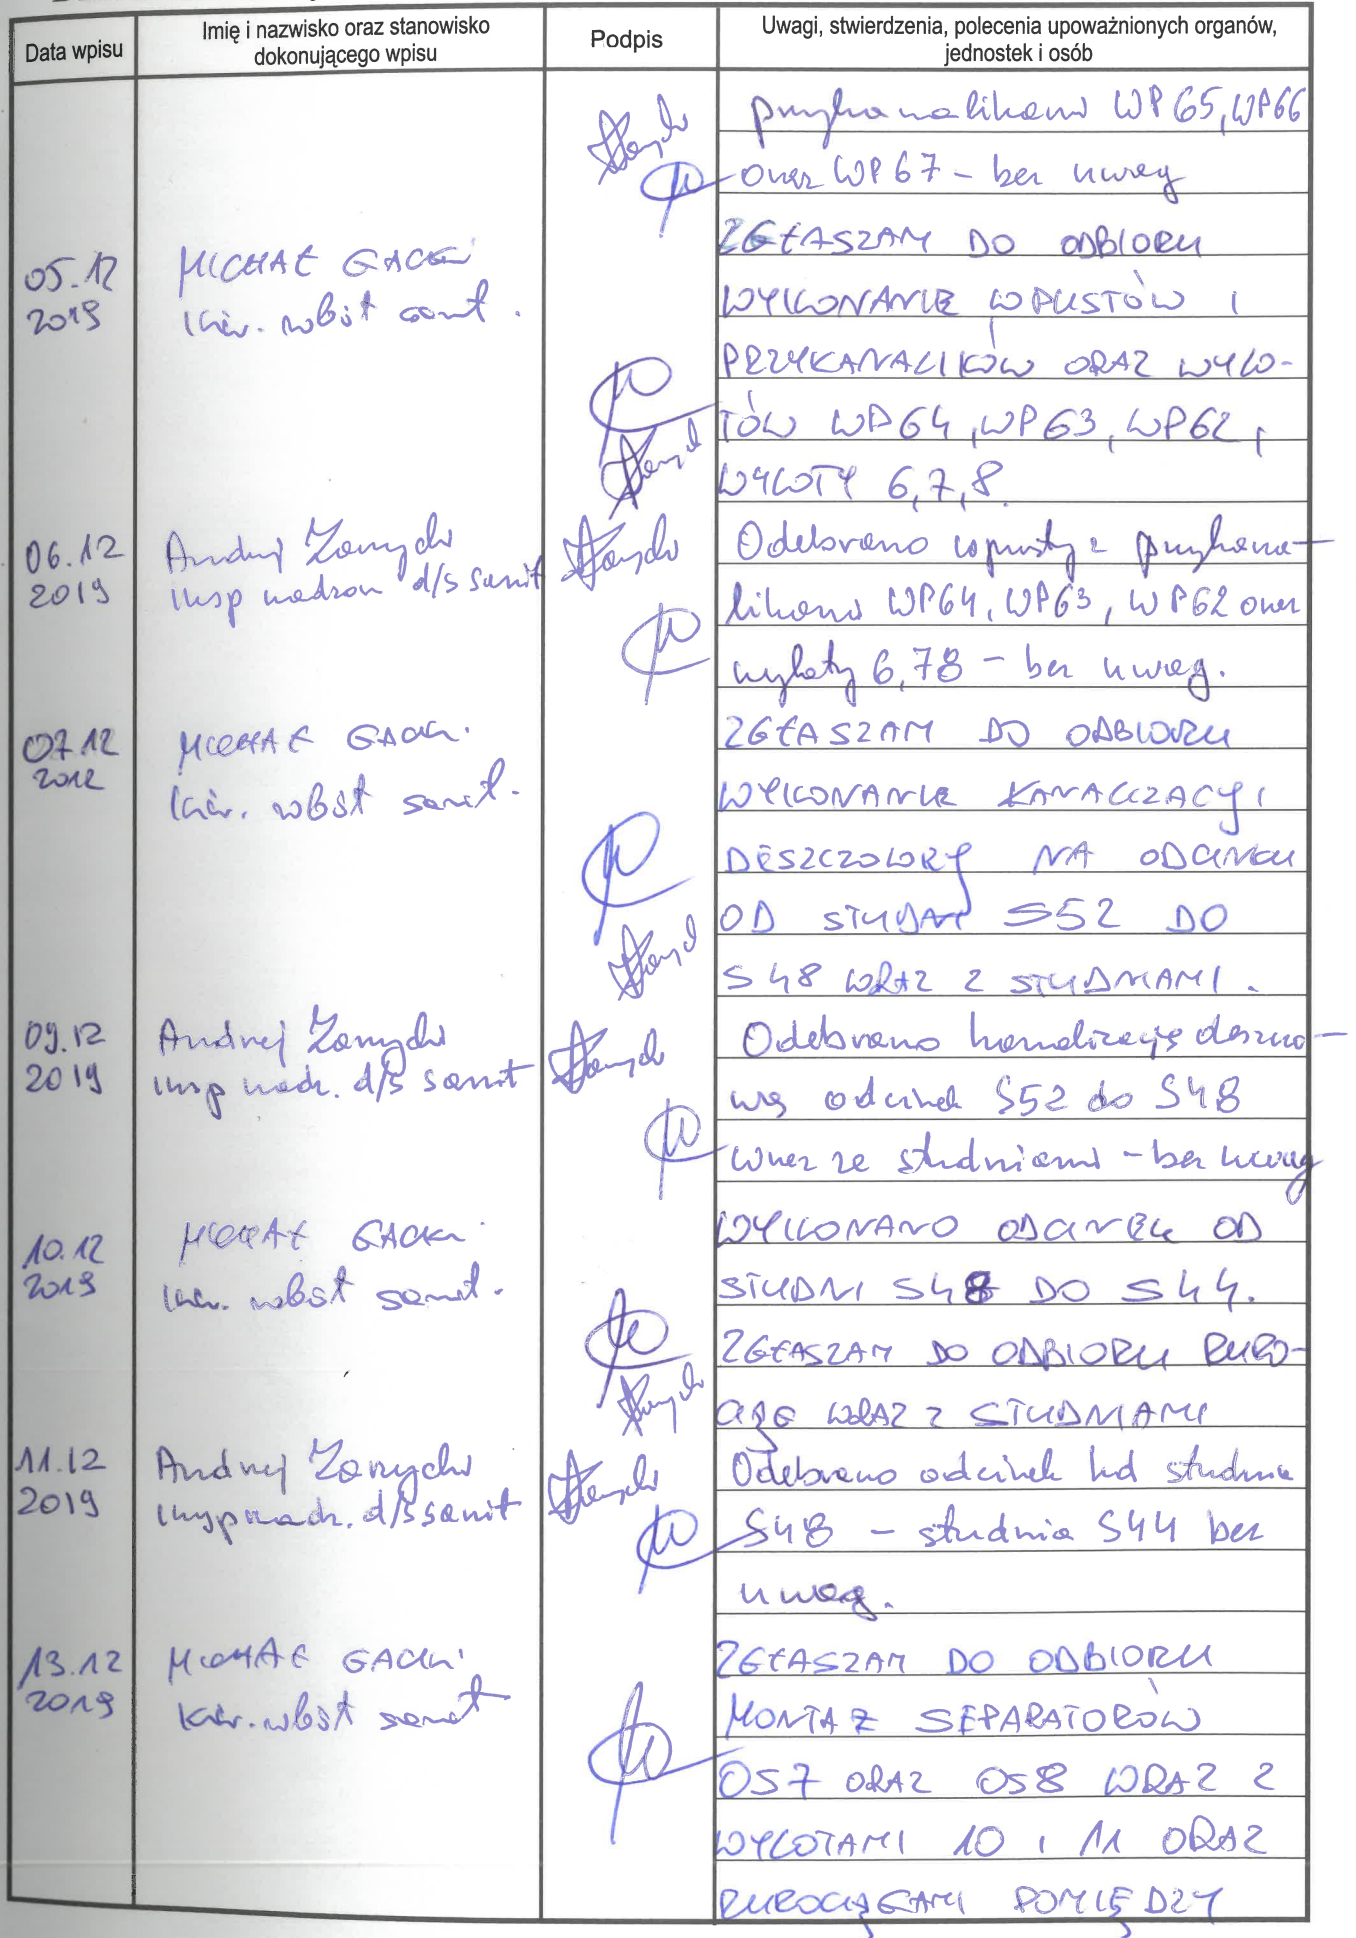 Data wpisu
Imię i nazwisko oraz stanowisko
dokonującego wpisu
Podpis
Uwagi, stwierdzenia, polecenia upoważnionych organów,
jednostek i osób
przykanalikami WP65, WP66
oraz WP67 - bez uwag
05.12
2019
MICHAŁ GACKI
kier. robót sanit.
ZGŁASZAM DO ODBIORU
WYKONANIE WPUSTÓW I
PRZYKANALIKÓW ORAZ WYLO-
TÓW WP64, WP63, WP62,
WYLOTY 6,7,8.
06.12
2019
Andrzej
insp nadzoru d/s sanit
Odebrano wpusty z przykana-
likami WP64, WP63, WP62 oraz
wyloty 6,78 - bez uwag.
07.12
2012
MICHAŁ GACKI
kier. robót sanit.
ZGŁASZAM DO ODBIORU
WYKONANIE KANALIZACJI
DESZCZOWEJ NA ODCINKU
OD STUDNI S52 DO
S48 WRAZ Z STUDNIAMI.
09.12
2019
Andrzej
insp nadz. d/s sanit
Odebrano kanalizację deszczo-
wą odcinek S52 do S48
wraz ze studniami - bez uwag
10.12
2019
MICHAŁ GACKI
kier. robót sanit.
WYKONANO ODCINEK OD
STUDNI S48 DO S44.
ZGŁASZAM DO ODBIORU RURO-
CIĄG WRAZ Z STUDNIAMI
11.12
2019
Andrzej
insp nadz. d/s sanit
Odebrano odcinek kd studnia
S48 - studnia S44 bez
uwag.
13.12
2019
MICHAŁ GACKI
kier. robót sanit
ZGŁASZAM DO ODBIORU
MONTAŻ SEPARATORÓW
OS7 ORAZ OS8 WRAZ Z
WYLOTAMI 10 I 11 ORAZ
RUROCIĄGAMI POMIĘDZY